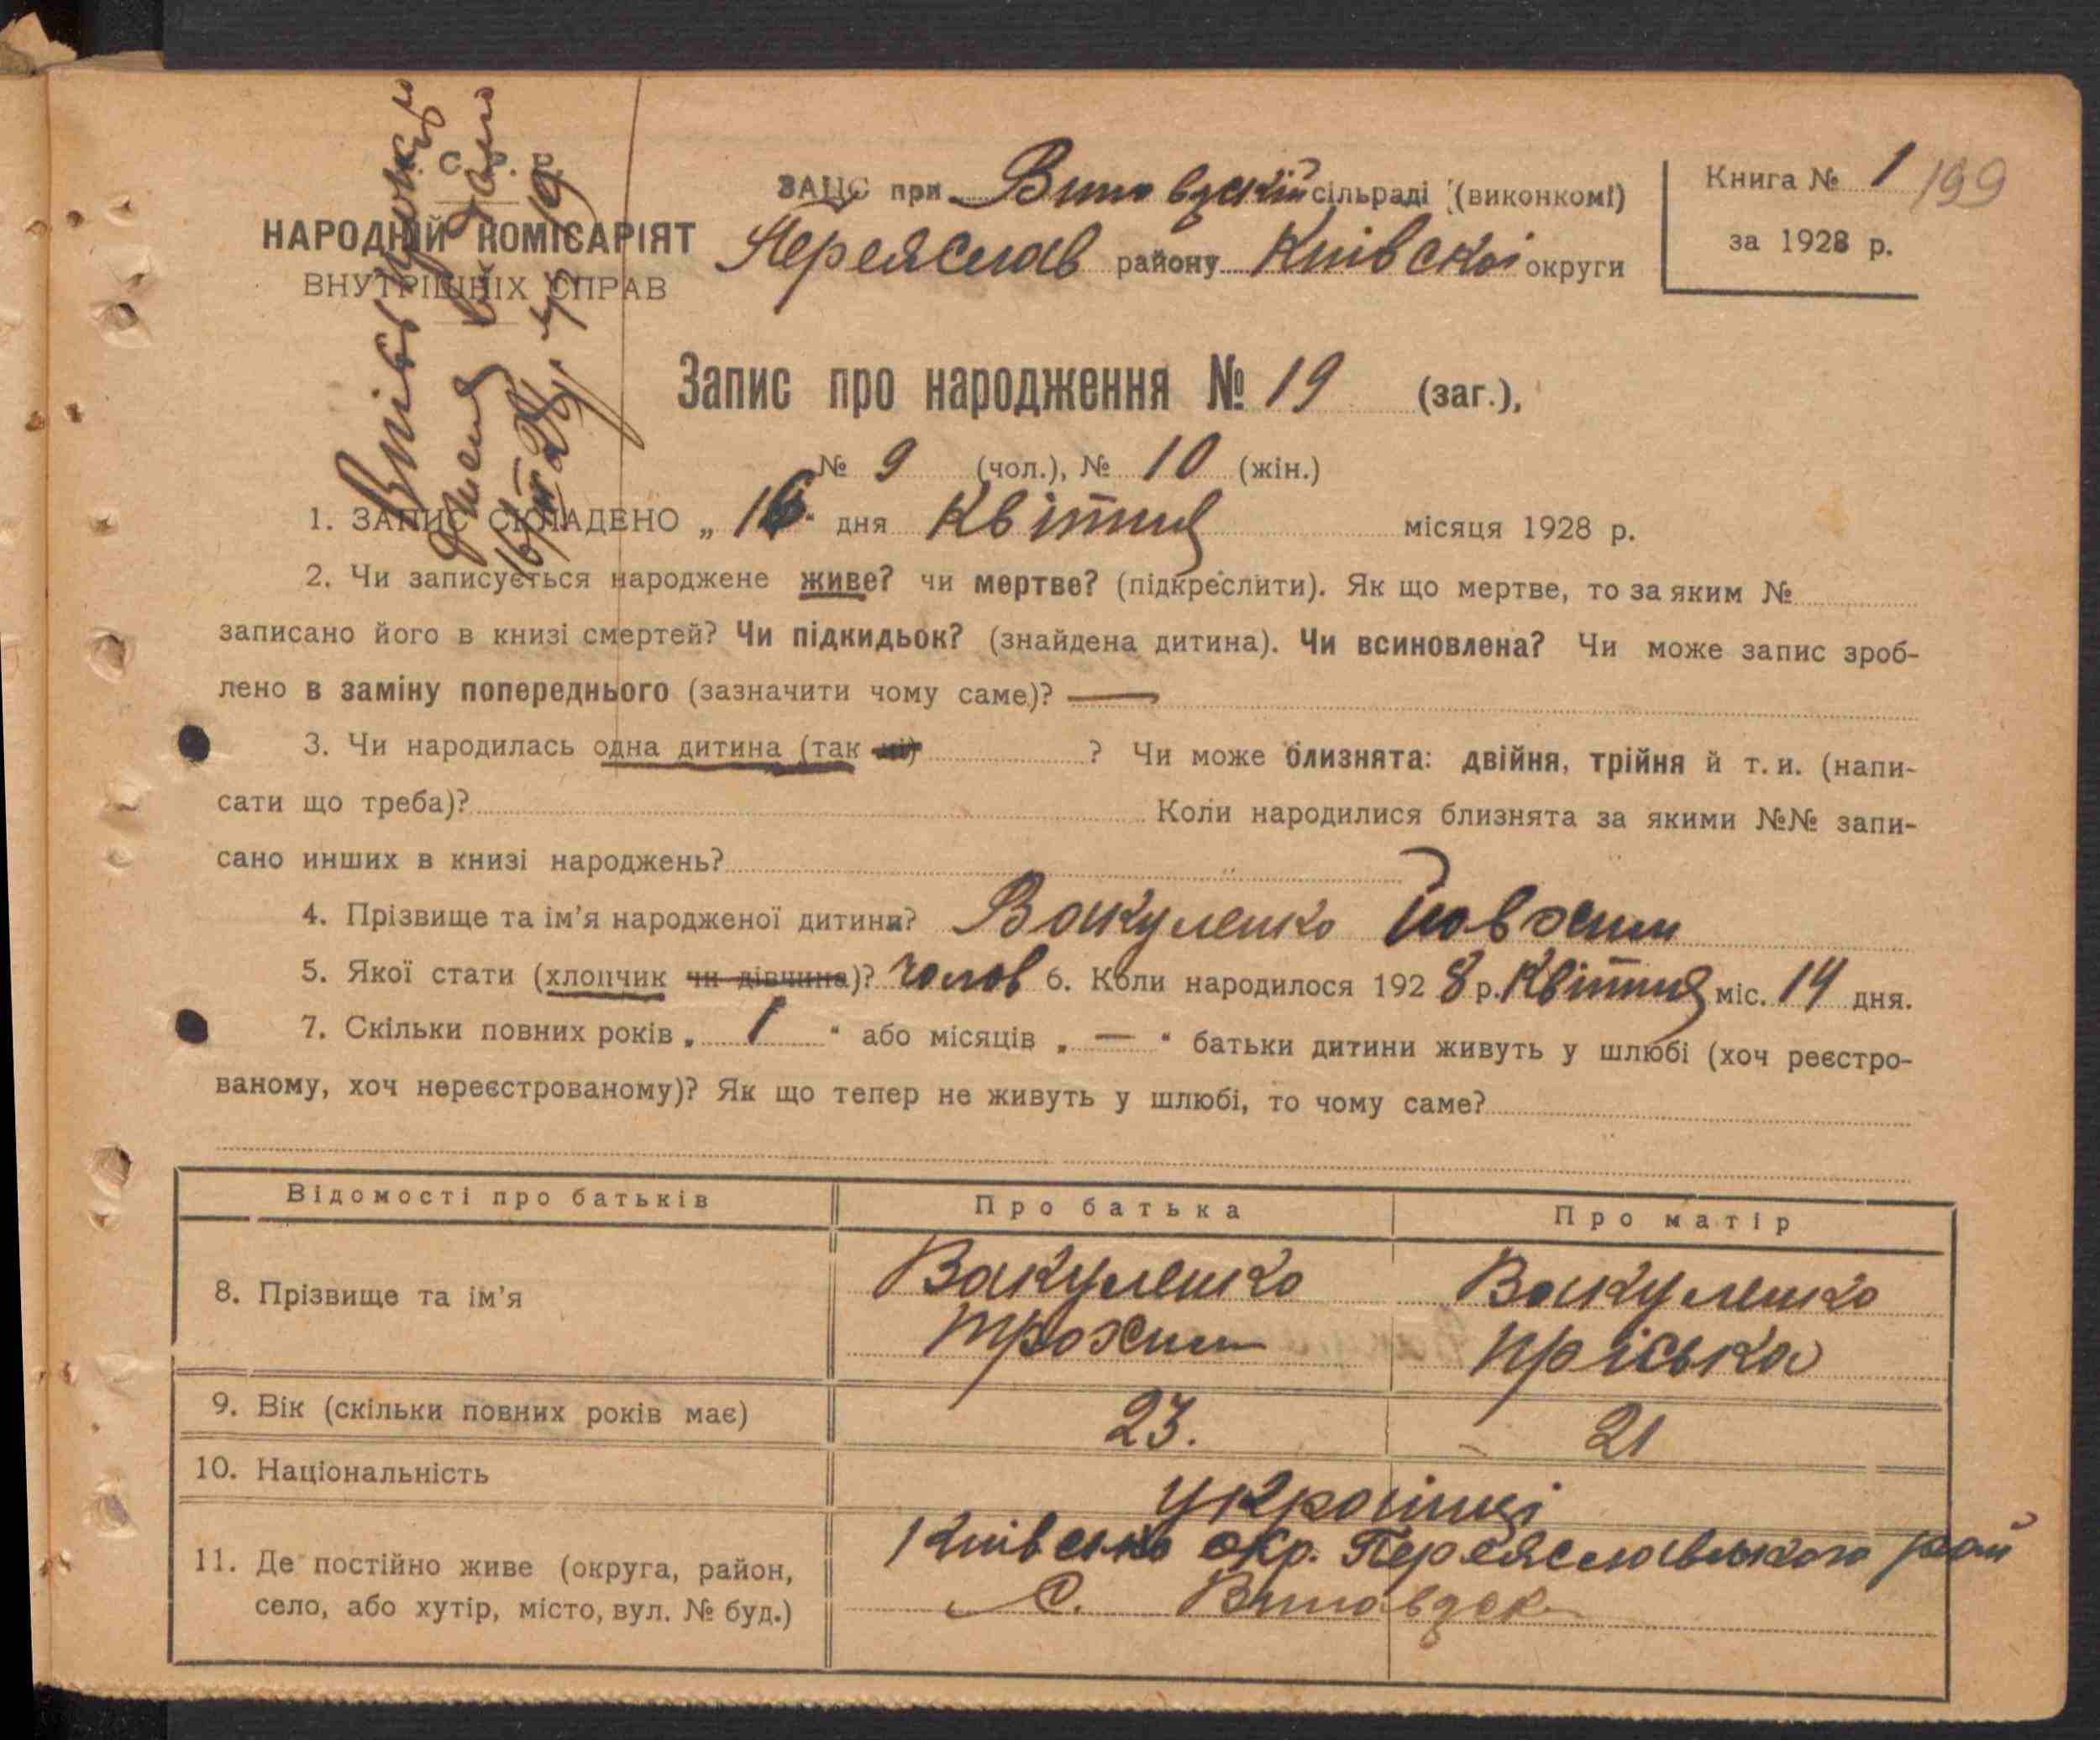 С. Р. Р.
НАРОДНІЙ КОМІСАРІЯТ
ВНУТРІШНІХ СПРАВ
ЗАЦС при сільраді (виконкомі)
Переяслав району Київскої округи
Книга № 1 199
за 1928 р.
Запис про народження № 19 (заг.),
№ 9 (чол.), № 10 (жін.)
1. ЗАПИС СКЛАДЕНО „ 16 “ дня Квітня місяця 1928 р.
2. Чи записується народжене живе? чи мертве? (підкреслити). Як що мертве, то за яким №
записано його в книзі смертей? Чи підкидьок? (знайдена дитина). Чи всиновлена? Чи може запис зроб-
лено в заміну попереднього (зазначити чому саме)? —
3. Чи народилась одна дитина (так ні) ? Чи може близнята: двійня, трійня й т. и. (напи-
сати що треба)? Коли народилися близнята за якими №№ запи-
сано инших в книзі народжень?
4. Прізвище та ім’я народженої дитини? Вакуленко
5. Якої стати (хлопчик чи дівчина)? чолов 6. Коли народилося 1928 р. Квітня міс. 14 дня.
7. Скільки повних років „ 1 “ або місяців „ — “ батьки дитини живуть у шлюбі (хоч реєстро-
ваному, хоч нереєстрованому)? Як що тепер не живуть у шлюбі, то чому саме?
Відомості про батьків Про батька Про матір
8. Прізвище та ім’я Вакуленко Вакуленко
Трохим Пріська
9. Вік (скільки повних років має) 23. 21
10. Національність українці
11. Де постійно живе (округа, район, окр. Переяславського рай
село, або хутір, місто, вул. № буд.) С.